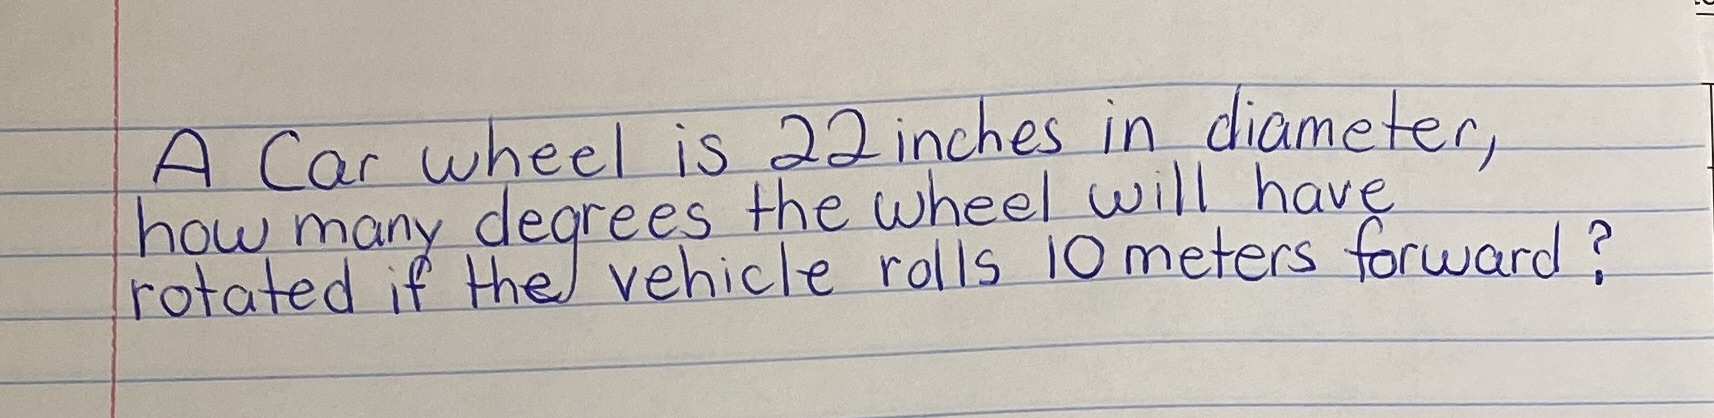 A Car wheel is 22 inches in diameter,
how many degrees the wheel will have
rotated if the vehicle rolls 10 meters forward?